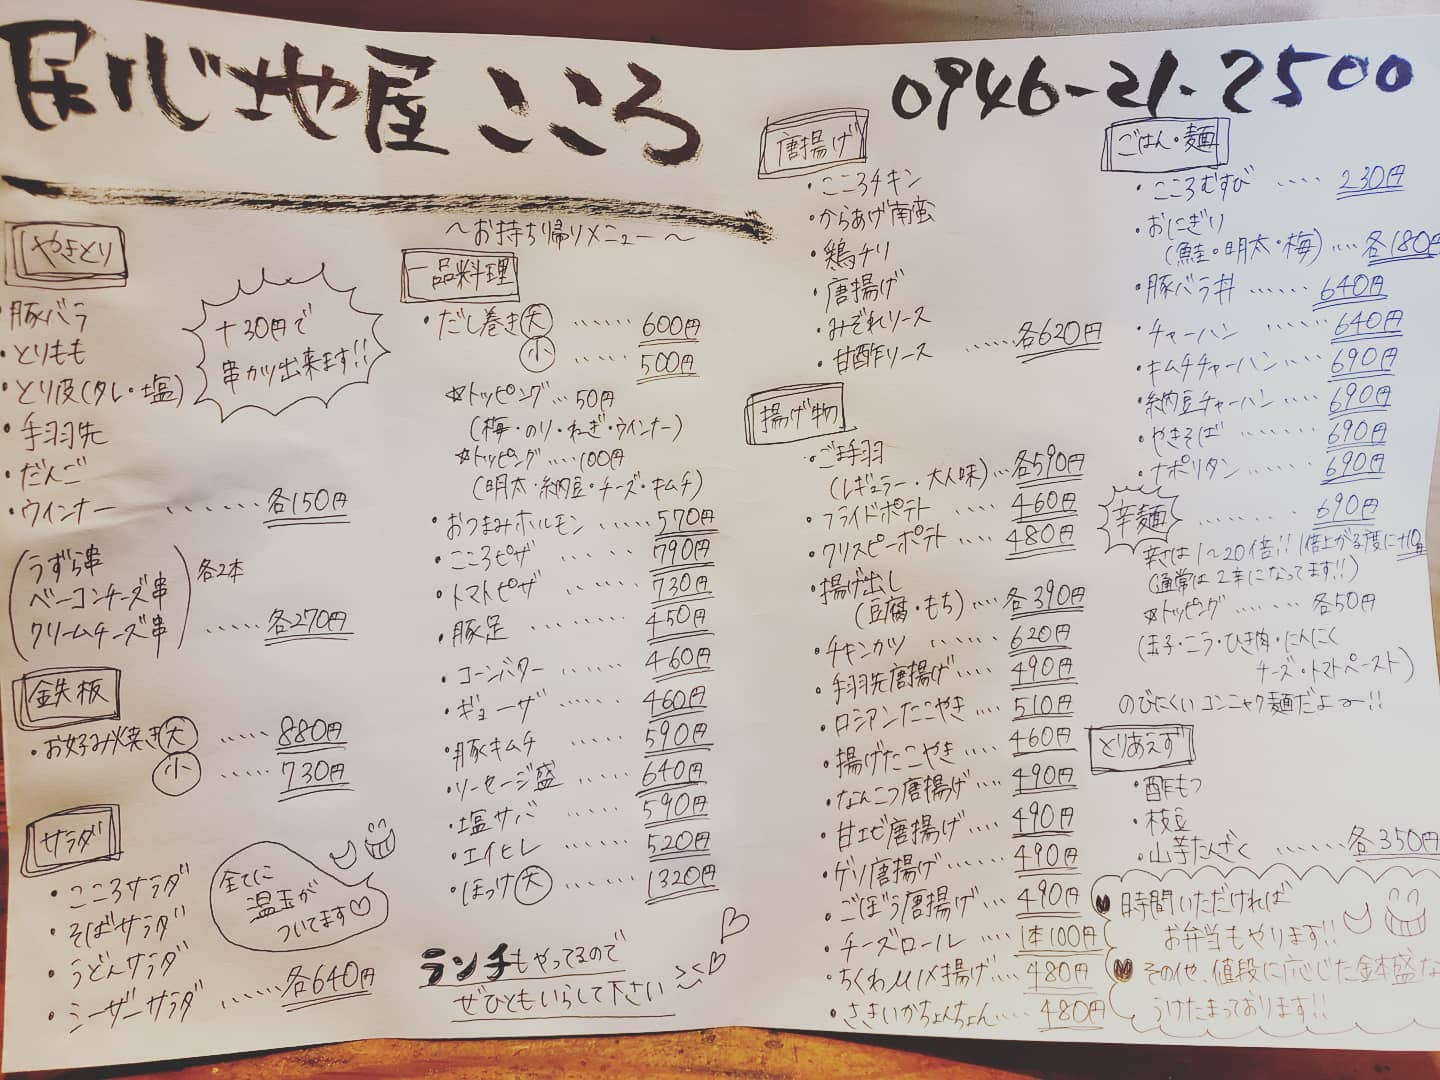 居心地屋 こころ
0946-21-2500
〜お持ち帰りメニュー〜
やきとり
・豚バラ
・とりもも
・とり皮(タレ・塩)
・手羽先
・だんご
・ウインナー ...... 各150円
+30円で
串カツ出来ます!!
うずら串
ベーコンチーズ串
クリームチーズ串
各2本
..... 各270円
鉄板
・お好み焼き 大 ..... 880円
小 ..... 730円
サラダ
・こころサラダ
・そばサラダ
・うどんサラダ
・シーザーサラダ ...... 各640円
全てに
温玉が
ついてます♡
一品料理
・だし巻き 大 ...... 600円
小 ..... 500円
☆トッピング...50円
(梅・のり・ねぎ・ウインナー)
☆トッピング....100円
(明太・納豆・チーズ・キムチ)
・おつまみホルモン ...... 570円
・こころピザ ...... 790円
・トマトピザ ..... 730円
・豚足 ..... 450円
・コーンバター ..... 460円
・ギョーザ ..... 460円
・豚キムチ ..... 590円
・ソーセージ盛 ..... 640円
・塩サバ ..... 590円
・エイヒレ ..... 520円
・ほっけ 大 ...... 1320円
ランチもやってるので
ぜひともいらして下さい
唐揚げ
・こころチキン
・からあげ南蛮
・鶏チリ
・唐揚げ
・みぞれソース
・甘酢ソース ..... 各620円
揚げ物
・ごま手羽
(レギュラー・大人味)... 各590円
・フライドポテト .... 460円
・クリスピーポテト .... 480円
・揚げ出し
(豆腐・もち).... 各390円
・チキンカツ ...... 620円
・手羽先唐揚げ .... 490円
・ロシアンたこやき .... 510円
・揚げたこやき .... 460円
・なんこつ唐揚げ .... 490円
・甘エビ唐揚げ .... 490円
・ゲソ唐揚げ ..... 490円
・ごぼう唐揚げ .... 490円
・チーズロール .... 1本100円
・ちくわ揚げ.... 480円
・さきいかちょんちょん.... 480円
ごはん・麺
・こころむすび ..... 230円
・おにぎり
(鮭・明太・梅) .... 各180円
・豚バラ丼 ..... 640円
・チャーハン ...... 640円
・キムチチャーハン .... 690円
・納豆チャーハン .... 690円
・やきそば ....... 690円
・ナポリタン ..... 690円
辛麺 ........ 690円
辛さは1〜20倍!! 1倍上がる度に+10円
(通常は2辛になってます!!)
☆トッピング ....... 各50円
(玉子・ニラ・ひき肉・にんにく
チーズ・トマトペースト)
のびにくいコンニャク麺だよ〜!!
とりあえず
・酢もつ
・枝豆
・山芋たんざく ...... 各350円
時間いただければ
お弁当もやります!!
その他、値段に応じた鉢盛な
うけたまっております!!